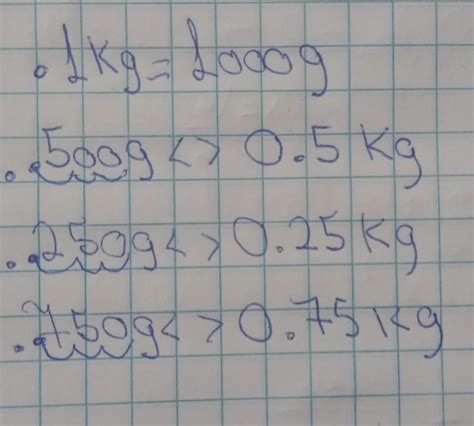 .1Kg = 1000g
..500g <> 0.5 Kg
..250g <> 0.25 Kg
..750g <> 0.75 Kg